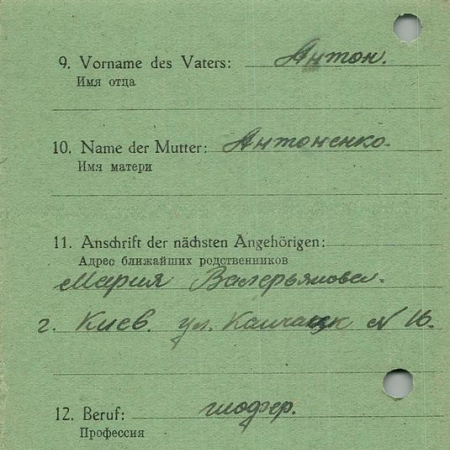 9. Vorname des Vaters: Антон.
Имя отца
10. Name der Mutter: Антоненко.
Имя матери
11. Anschrift der nächsten Angehörigen:
Адрес ближайших родственников
Мария Валерьяновн.
г. Киев. ул. N 16.
12. Beruf: шофер.
Профессия